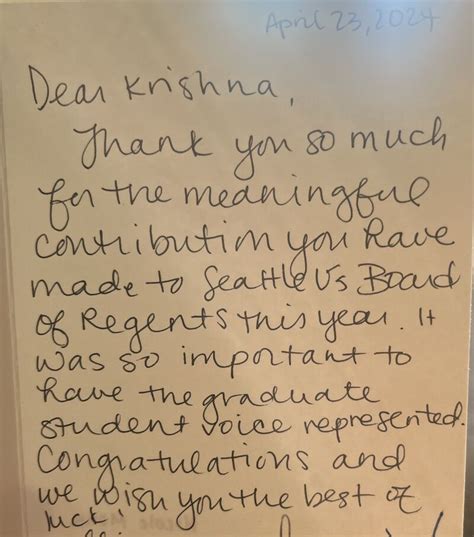 April 23, 2024
Dear Krishna,
Thank you so much
for the meaningful
contribution you have
made to Seattle Us Board
of Regents this year. It
was so important to
have the graduate
student voice represented.
Congratulations and
we wish you the best of
luck!